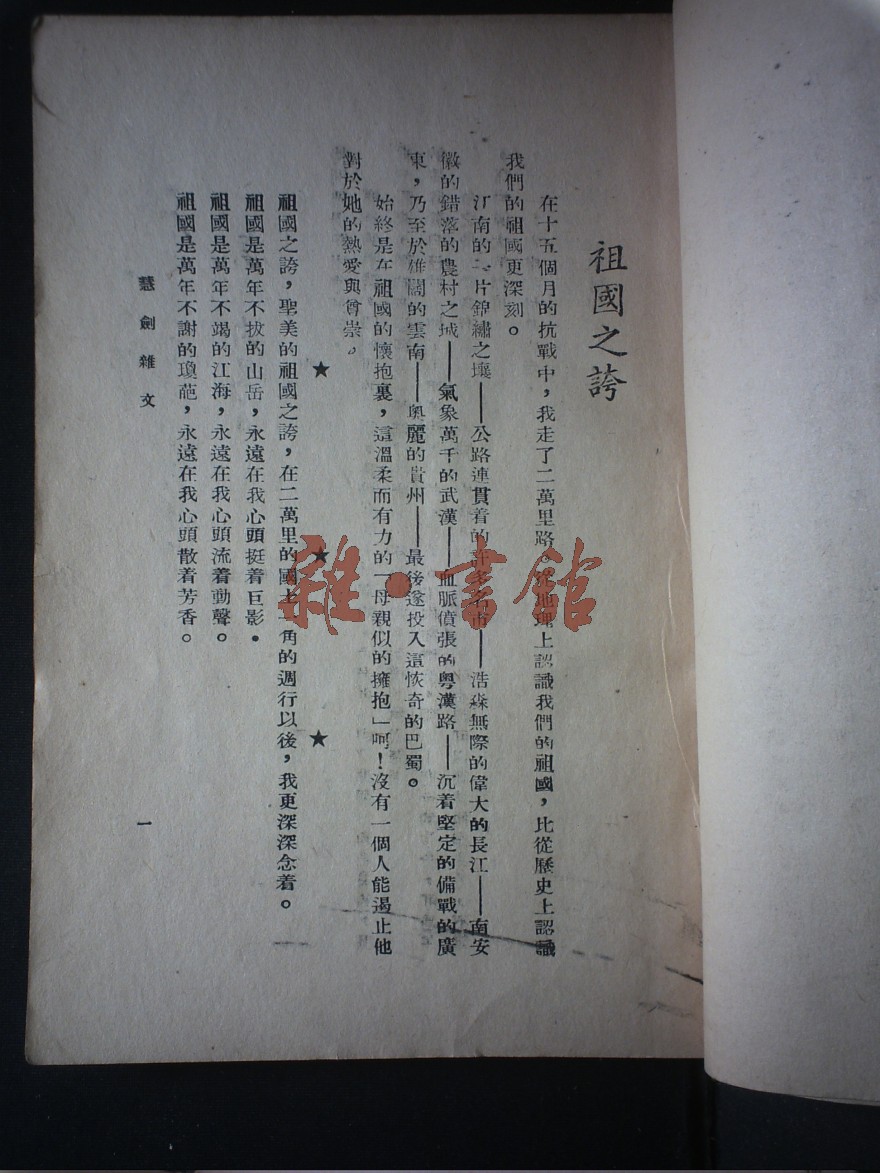 祖國之誇
在十五個月的抗戰中，我走了二萬里路，從地理上認識我們的祖國，比從歷史上認識
我們的祖國更深刻。
江南的一片錦繡之壤——公路連貫着的許多名市——浩淼無際的偉大的長江——南安
徽的錯落的農村之城——氣象萬千的武漢——血脈僨張的粵漢路——沉着堅定的備戰的廣
東，乃至於雄闊的雲南——奧麗的貴州——最後遂投入這恢奇的巴蜀。
始終是在祖國的懷抱裏，這溫柔而有力的「母親似的擁抱」呵！沒有一個人能遏止他
對於她的熱愛與尊崇。
★ ★ ★
祖國之誇，聖美的祖國之誇，在二萬里的國土一角的週行以後，我更深深念着。
祖國是萬年不拔的山岳，永遠在我心頭挺着巨影。
祖國是萬年不竭的江海，永遠在我心頭流着動聲。
祖國是萬年不謝的瓊葩，永遠在我心頭散着芳香。
慧劍雜文
一
雜·書館